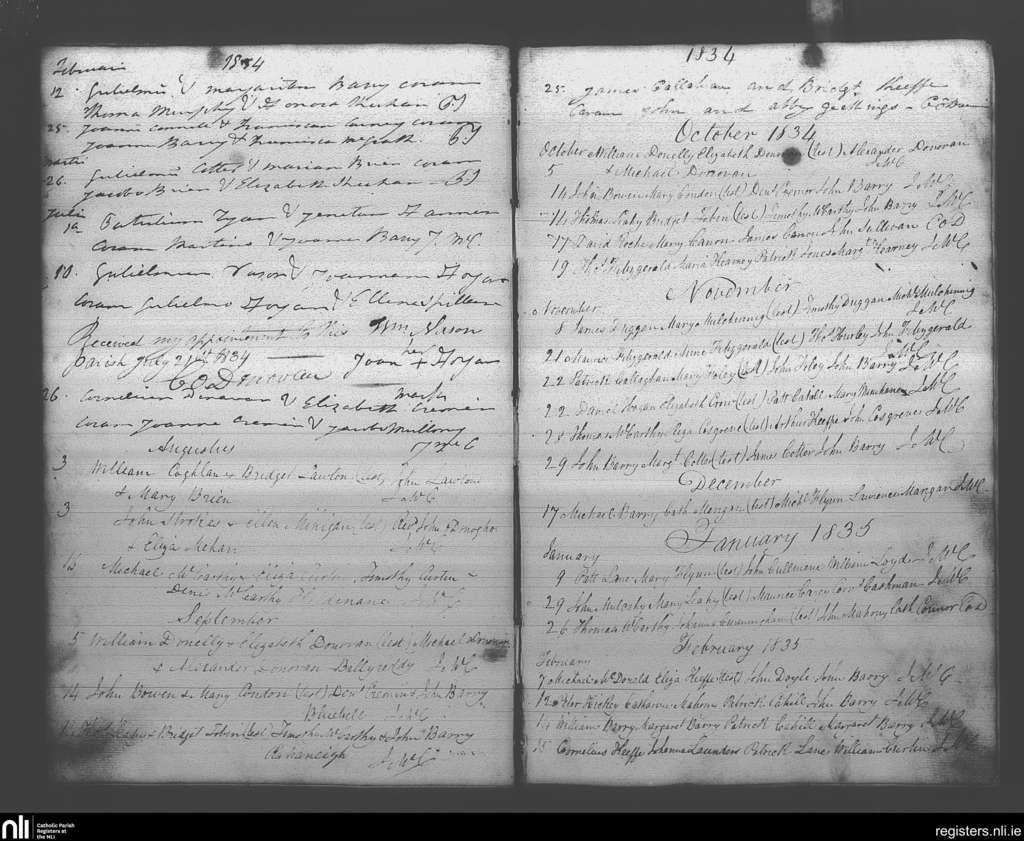 1834
Februarii
12. Gulielmū & margaritam Barry coram
Thoma Murphy & Honora Sheehan
25. Joannem & Franciscam coram
Joanne Barry & Francisca McGrath
Martii
26. Gulielmū Cotter & mariam Brien coram
Jacobo Brien & Elizabeth Sheehan
Julii
1a Patricium Ryan & Hannon
coram Martino & Joanne Barry J. McC.
10. Gulielmum Nason & Joannam Hogan
coram Gulielmo Hogan & Ellena Spillane
Received my appointment to this Wm Nason
Parish July 21st 1834 her
C O'Donovan Joan + Hogan
mark
26. Cornelium Donovan & Elizabeth Cremin
coram Joanne Cremin & Jacobo Mullony
Augustus J McC
3 William Coghlan & Bridget Lawton (test) John Lawton
& Mary Brien J McC
3 John Strokes & Ellen Minigan (test) Revd John Donogho
& Eliza Mehan J McC
Michael McCarthy & Eliza Curtin, Timothy Curtin &
Denis McCarthy J McC
September
5 William Donelly & Elizabeth Donovan (test) Michael Donovan
& Alexander Donovan Ballyroldy J McC
14 John Bowen & Mary Condon (test) Denl & John Barry
Bluebell J McC
Leahy & Bridget Tobin (test) Timothy McCarthy & John Barry
J McC
1834
25. James Callahan and Bridgt Keeffe
Coram John and abby
October 1834
October William Donelly Elizabeth Donovan (test) Alexander Donovan
5 & Michael Donovan J McC
14 John Bowen Mary Condon (test) Denl John Barry J McC
14 Thomas Leahy Bridget Tobin (test) Timothy McCarthy John Barry J McC
17 David Roche Mary Canon James Canon John Sullivan C O D
19 Thos Fitzgerald Maria Kearney Patrick Jones Margt Kearney J McC
November
November
8 James Duggan Mary Mulchinnig (test) Timothy Duggan Michl Mulchinnig
J McC
21 Maurice Fitzgerald Anne Fitzgerald (test) Thos Hurley John Fitzgerald
J McC
22 Patrick Callaghan Mary Foley (test) John Foley John Barry J McC
22 Daniel Hogan Elizabeth (test) Patt Cahill Mary J McC
Thomas McCarthy Eliza Cosgreve (test) Arthur Keeffe John Cosgreve J McC
29 John Barry Margt Cotter (test) James Cotter John Barry J McC
December
17 Michael Barry Cath Mangan (test) Michl Flynn Laurence Mangan J McC
January 1835
January
9 Patt Lane Mary Flynn (test) John Cullinane William J McC
29 John Mulcahy Mary Leahy (test) Maurice Carey Corns Cashman J McC
26 Thomas McCarthy Johanna Cunningham (test) John Mahony Cath Connor C O D
February 1835
February
7 Michael McDonald Eliza Keeffe (test) John Doyle John Barry J McC
12 Peter Hickey Catharine Mahony Patrick Cahill John Barry J McC
William Berry Margaret Barry Patrick Cahill Margaret Barry J McC
15 Cornelius Keeffe Johanna Launders Patrick Lane William Curtin J McC
nli Catholic Parish
Registers at
the NLI
registers.nli.ie